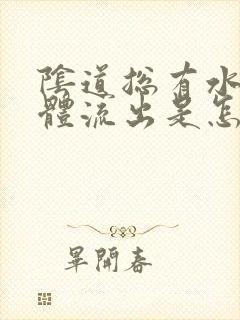 陰道總有水
體流出是怎
畢開春